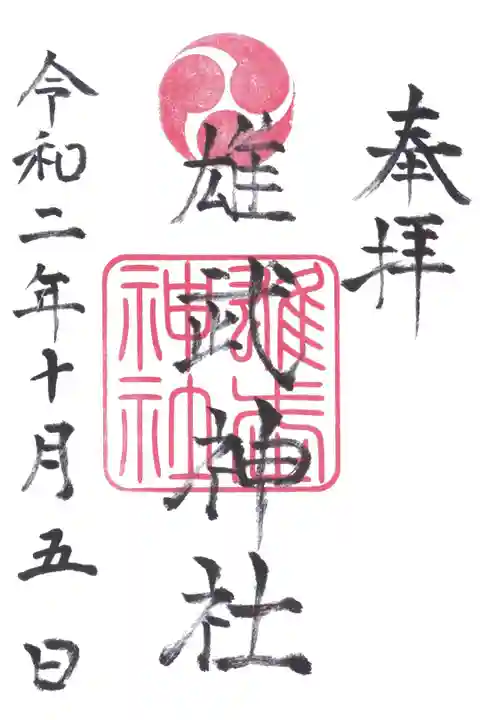 奉拝
雄武神社
雄武神社
令和二年十月五日